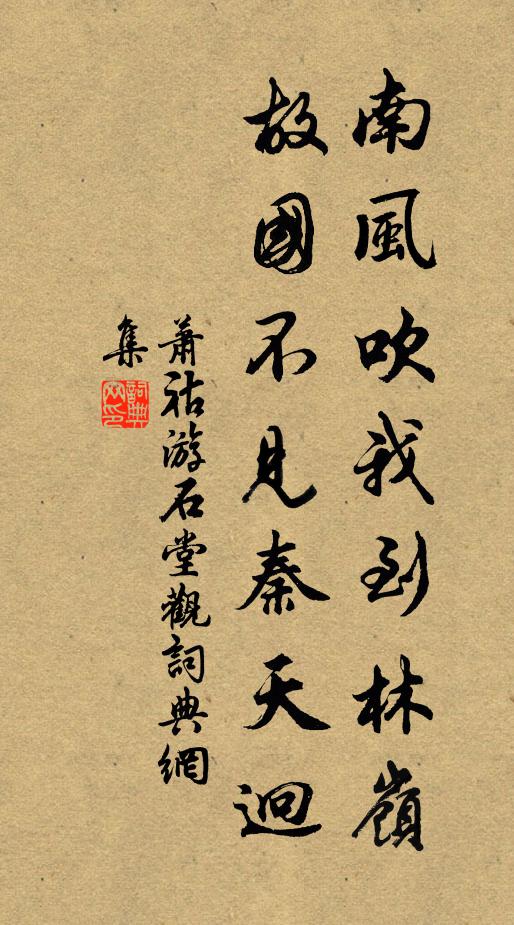 南風吹我到林嶺
故國不見秦天迥
蕭祜游石堂觀詞典網
集
詞典
网印